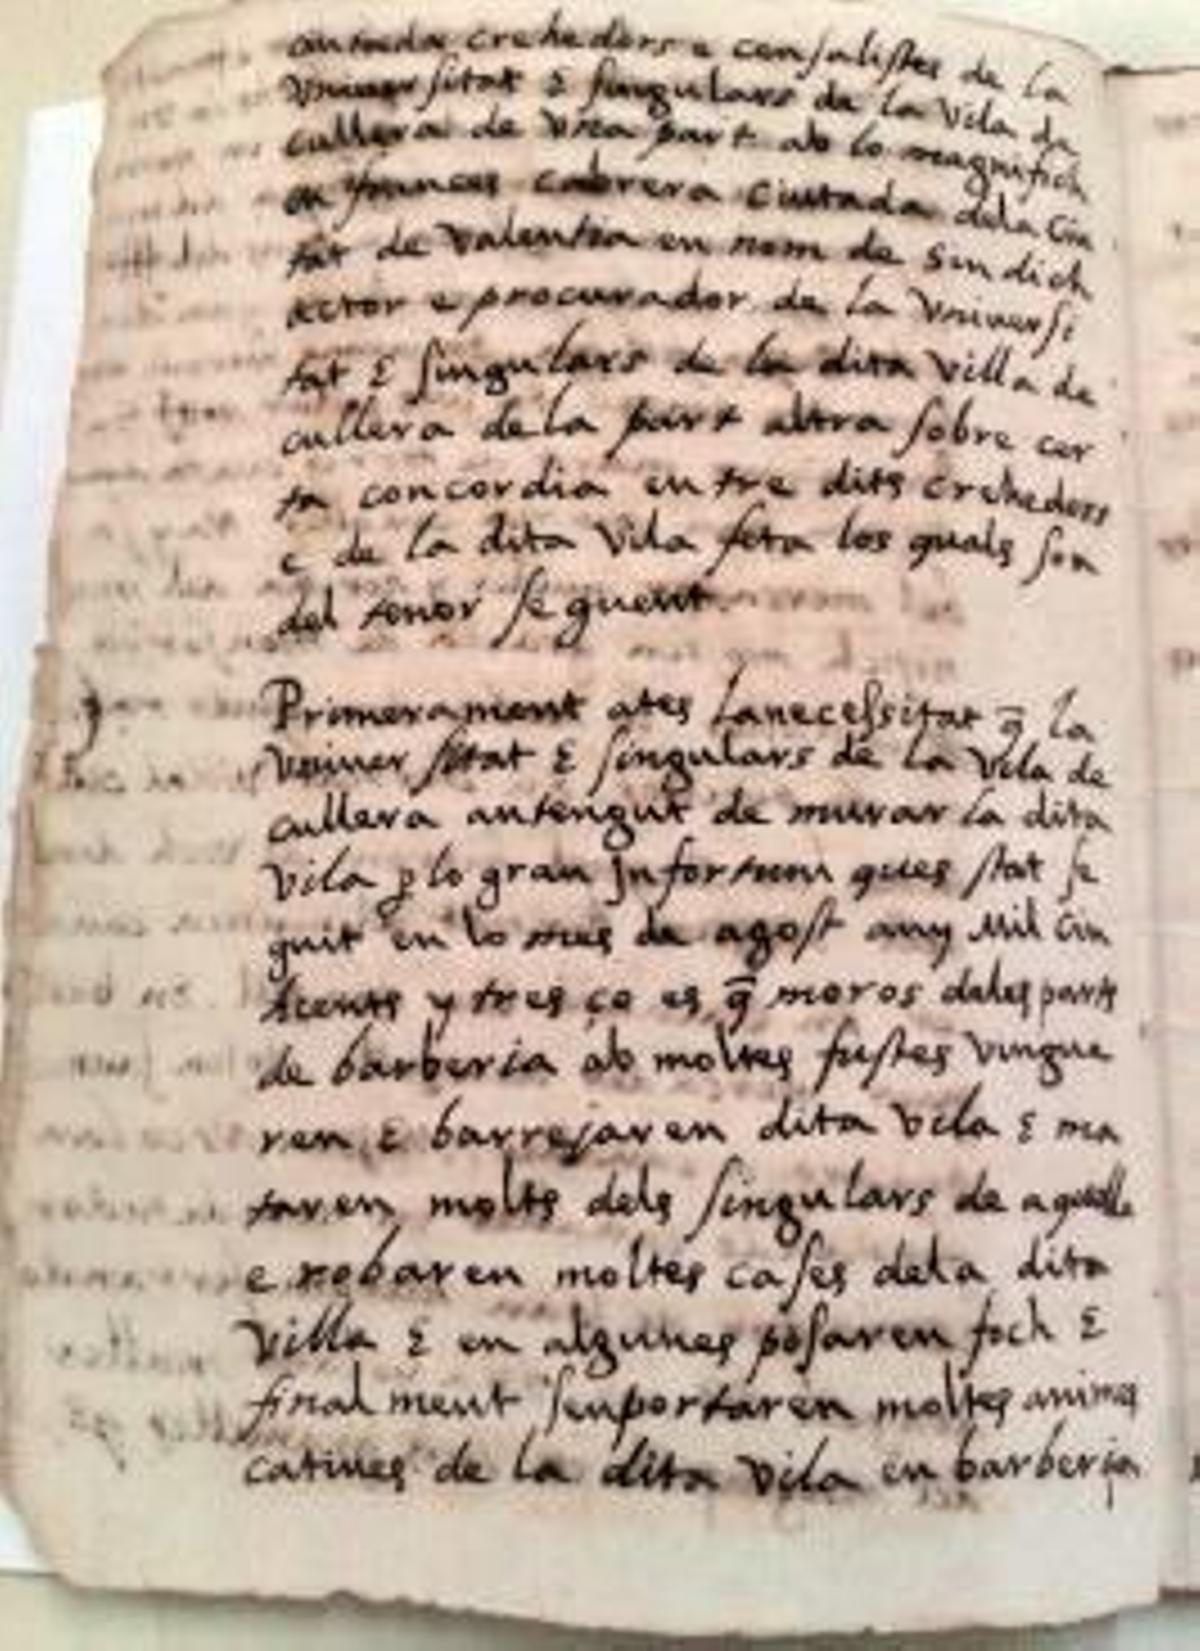 crehedors e censalistes de la
Vniuersitat & singulars de la Vila de
cullera de vna part ab lo magnifich
en frances cabrera ciutada dela ciu
tat de Valentia en nom de sindich
actor e procurador de la Vniuersi
tat & singulars de la dita villa de
cullera dela part altra sobre cer
ta concordia entre dits crehedors
e de la dita Vila feta los quals son
del tenor seguent
Primerament ates lanecessitat q̄ la
Vniuersitat & singulars de la Vila de
cullera antengut de murar la dita
Vila ꝑ lo gran jnfortuni ques stat se
guit en lo mes de agost any Mil cin
hcents y tres ço es q̄ moros deles parts
de barberia ab moltes fustes vingue
ren e barrejaren dita Vila & ma
taren molts dels singulars de aquella
e robaren moltes cases dela dita
Villa & en algunes posaren foch &
finalment senportaren moltes animes
catiues de la dita Vila en barberia